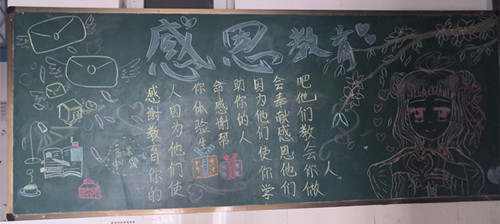 感恩教育
感谢教育你的
人因为他们使
你体验生
命感谢帮
助你的人
因为他们使你学
会奉献感恩他们
吧他们教会你做
人